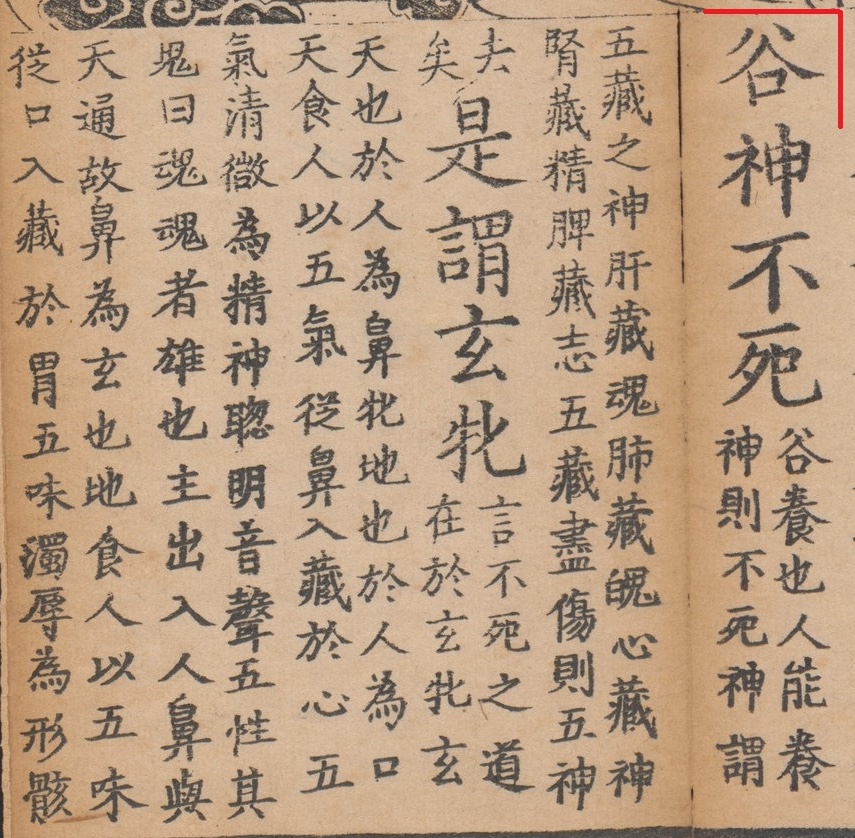 谷神不死
谷養也人能養
神則不死神謂
五藏之神肝藏魂肺藏魄心藏神
腎藏精脾藏志五藏盡傷則五神
去
矣
是謂玄牝
言不死之道
在於玄牝玄
天也於人為鼻牝地也於人為口
天食人以五氣従鼻入藏於心五
氣清微為精神聦明音聲五性其
鬼曰魂魂者雄也主出入人鼻與
天通故鼻為玄也地食人以五味
従口入藏於胃五味濁辱為形骸